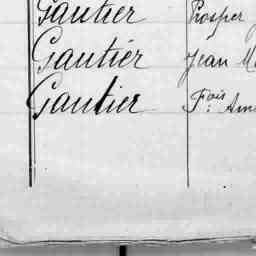 Gautier Prosper
Gautier Jean
Gautier Fois